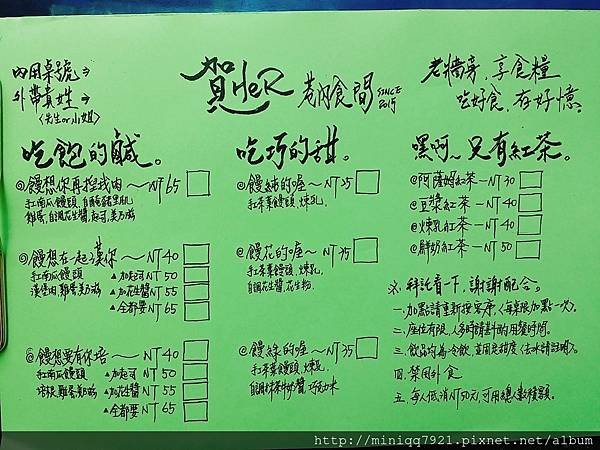 內用桌號→
外帶貴姓→
(先生or小姐)
賀HeR 巷內食間 SINCE 2015
老牆旁,享食糧
吃好食,存好憶。
吃飽的鹹。
◎饅想你再捏我肉~NT 65
紅南瓜饅頭,自醃豬里肌
雞蛋,自調花生醬,起司,美乃滋
◎饅想在一起漢你~NT 40
紅南瓜饅頭 ▲加起司 NT 50
漢堡肉,雞蛋,美乃滋 ▲加花生醬 NT 55
▲全都要 NT 65
◎饅想要有你培~NT 40
紅南瓜饅頭 ▲加起司 NT 50
培根,雞蛋,美乃滋 ▲加花生醬 NT 55
▲全都要 NT 65
吃巧的甜。
◎饅純的喔~NT 25
紅茶葉饅頭,煉乳
◎饅花的喔~NT 35
紅茶葉饅頭,煉乳
自調花生醬,花生粉
◎饅綠的喔~NT 35
紅茶葉饅頭,煉乳
自調抹茶牛奶醬,巧克力米
嘿啊~只有紅茶。
◎阿薩姆紅茶—NT 30
◎豆漿紅茶—NT 40
◎煉乳紅茶—NT 40
◎鮮奶紅茶—NT 50
※:拜託看一下,謝謝配合。
一.加點請重新按客序(每桌限加點一次)。
二.座位有限,人多時請斟酌用餐時間。
三.飲品均為冷飲,並固定甜度(去冰請註明)。
四.禁用外食
五.每人低消NT50元,可用總人數積算員。
http://miniqq7921.pixnet.net/album